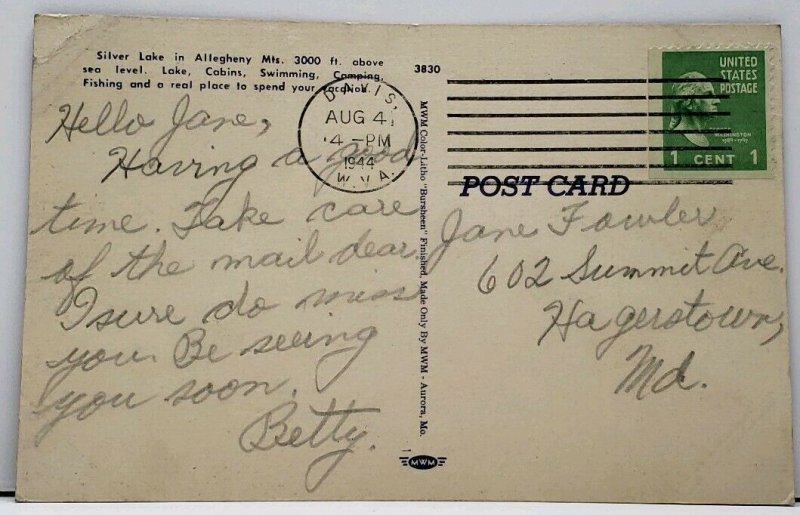 Silver Lake in Allegheny Mts. 3000 ft. above
sea level. Lake, Cabins, Swimming, Camping,
Fishing and a real place to spend your vacation.
3830
DAVIS,
AUG 4
4-PM
1944
W.VA.
UNITED
STATES
POSTAGE
WASHINGTON
1789-1797
1 CENT 1
POST CARD
Hello Jane,
Having a good
time. Take care
of the mail dear.
I sure do miss
you. Be seeing
you soon.
Betty.
MWM Color-Litho "Bursheen" Finished, Made Only By MWM - Aurora, Mo.
MWM
Jane Fowler
602 Summit Ave.
Hagerstown,
Md.